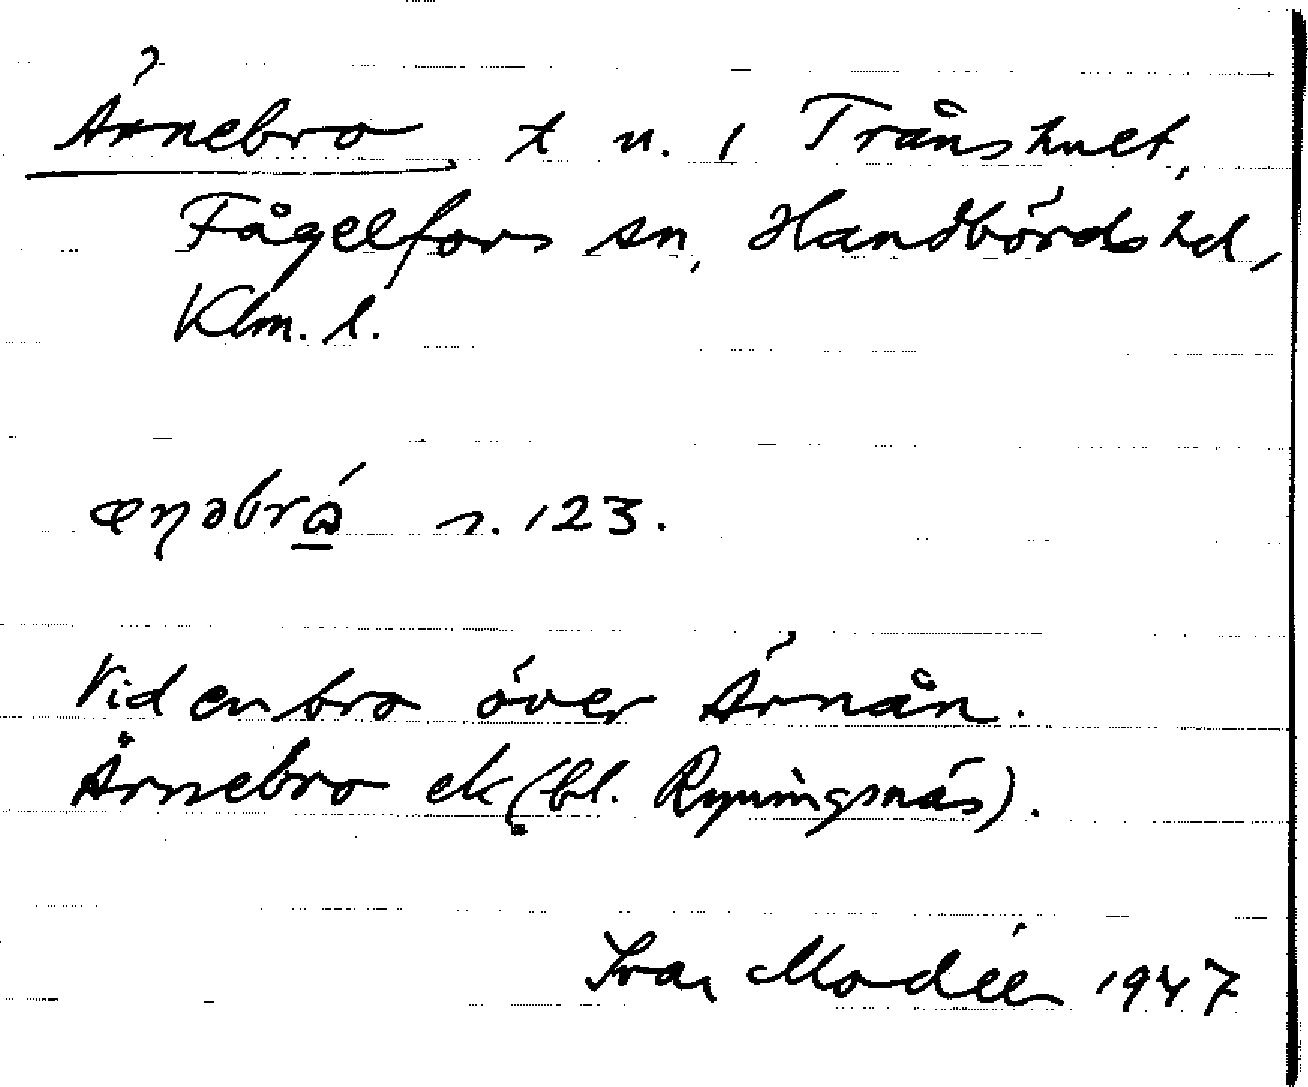 Ärnebro t u. 1 Trånshult,
Fågelfors sn, Handbörds hd,
Klm. l.
123.
Vid en bro över Ärnån.
Årnebro ek (bl. Ryningsnäs).
Ivar Modéer 1947